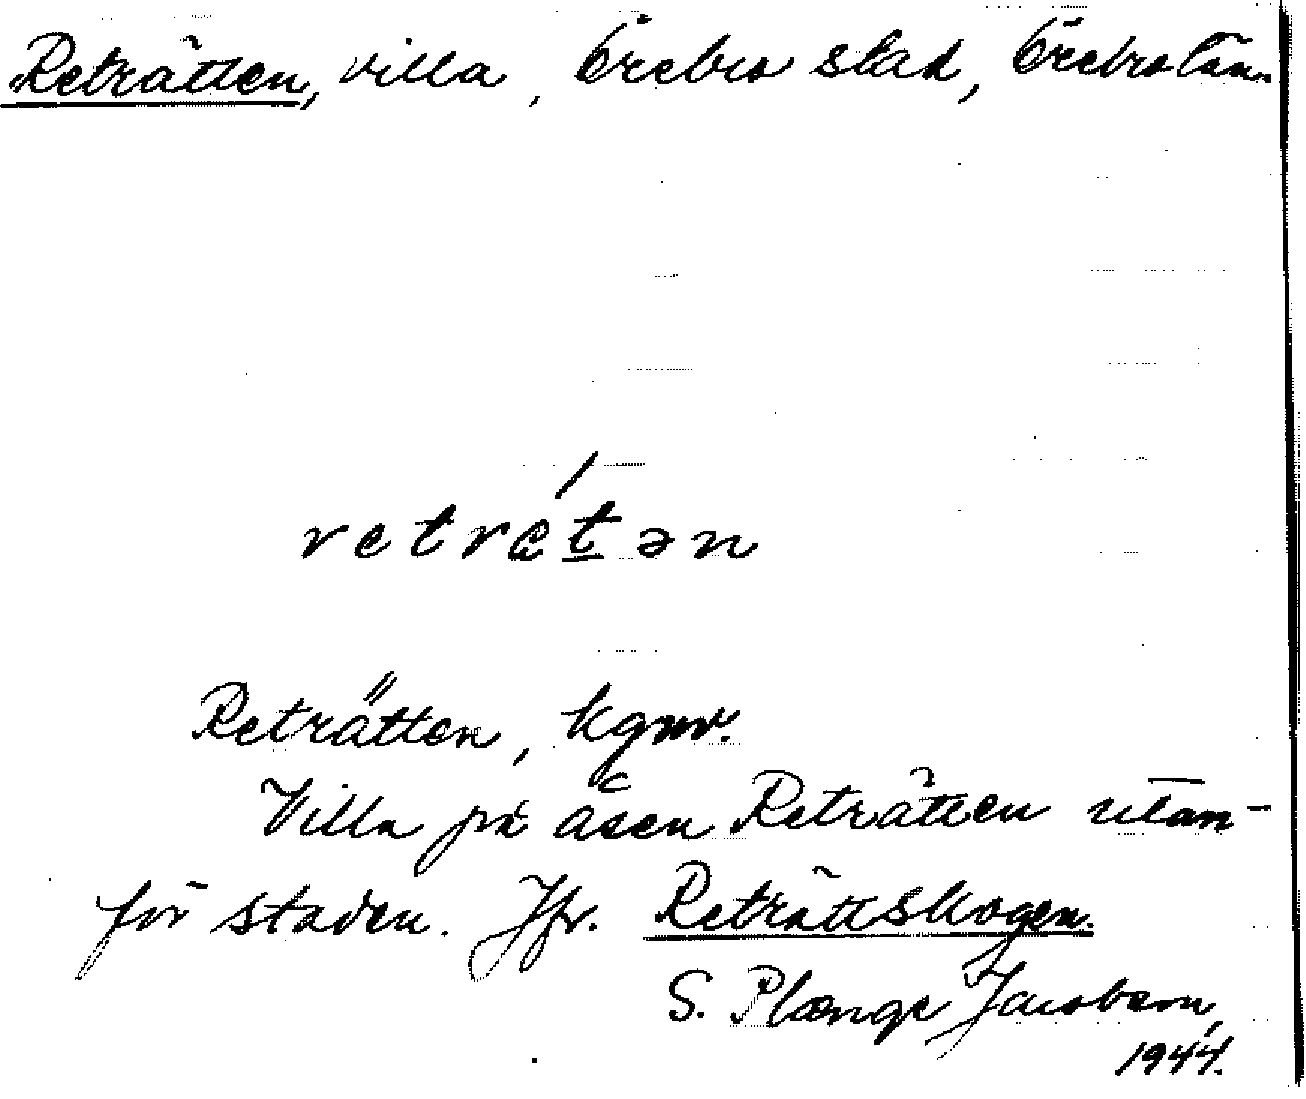 Reträtten, villa, Örebro stad, Örebro län.
reträtən
Reträtten, kgnr.
Villa på åsen Reträtten utan-
för staden. Jfr. Reträttskogen.
S. Plænge Jacobson,
1944.